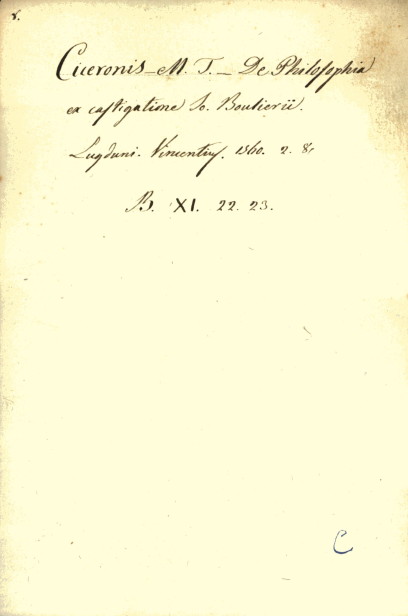 8.
Ciceronis – M. T. – De Philosophia
ex castigatione Io. Boulierii.
Lugduni. Vincentius. 1560. 2. 8.
B. XI. 22. 23.
C